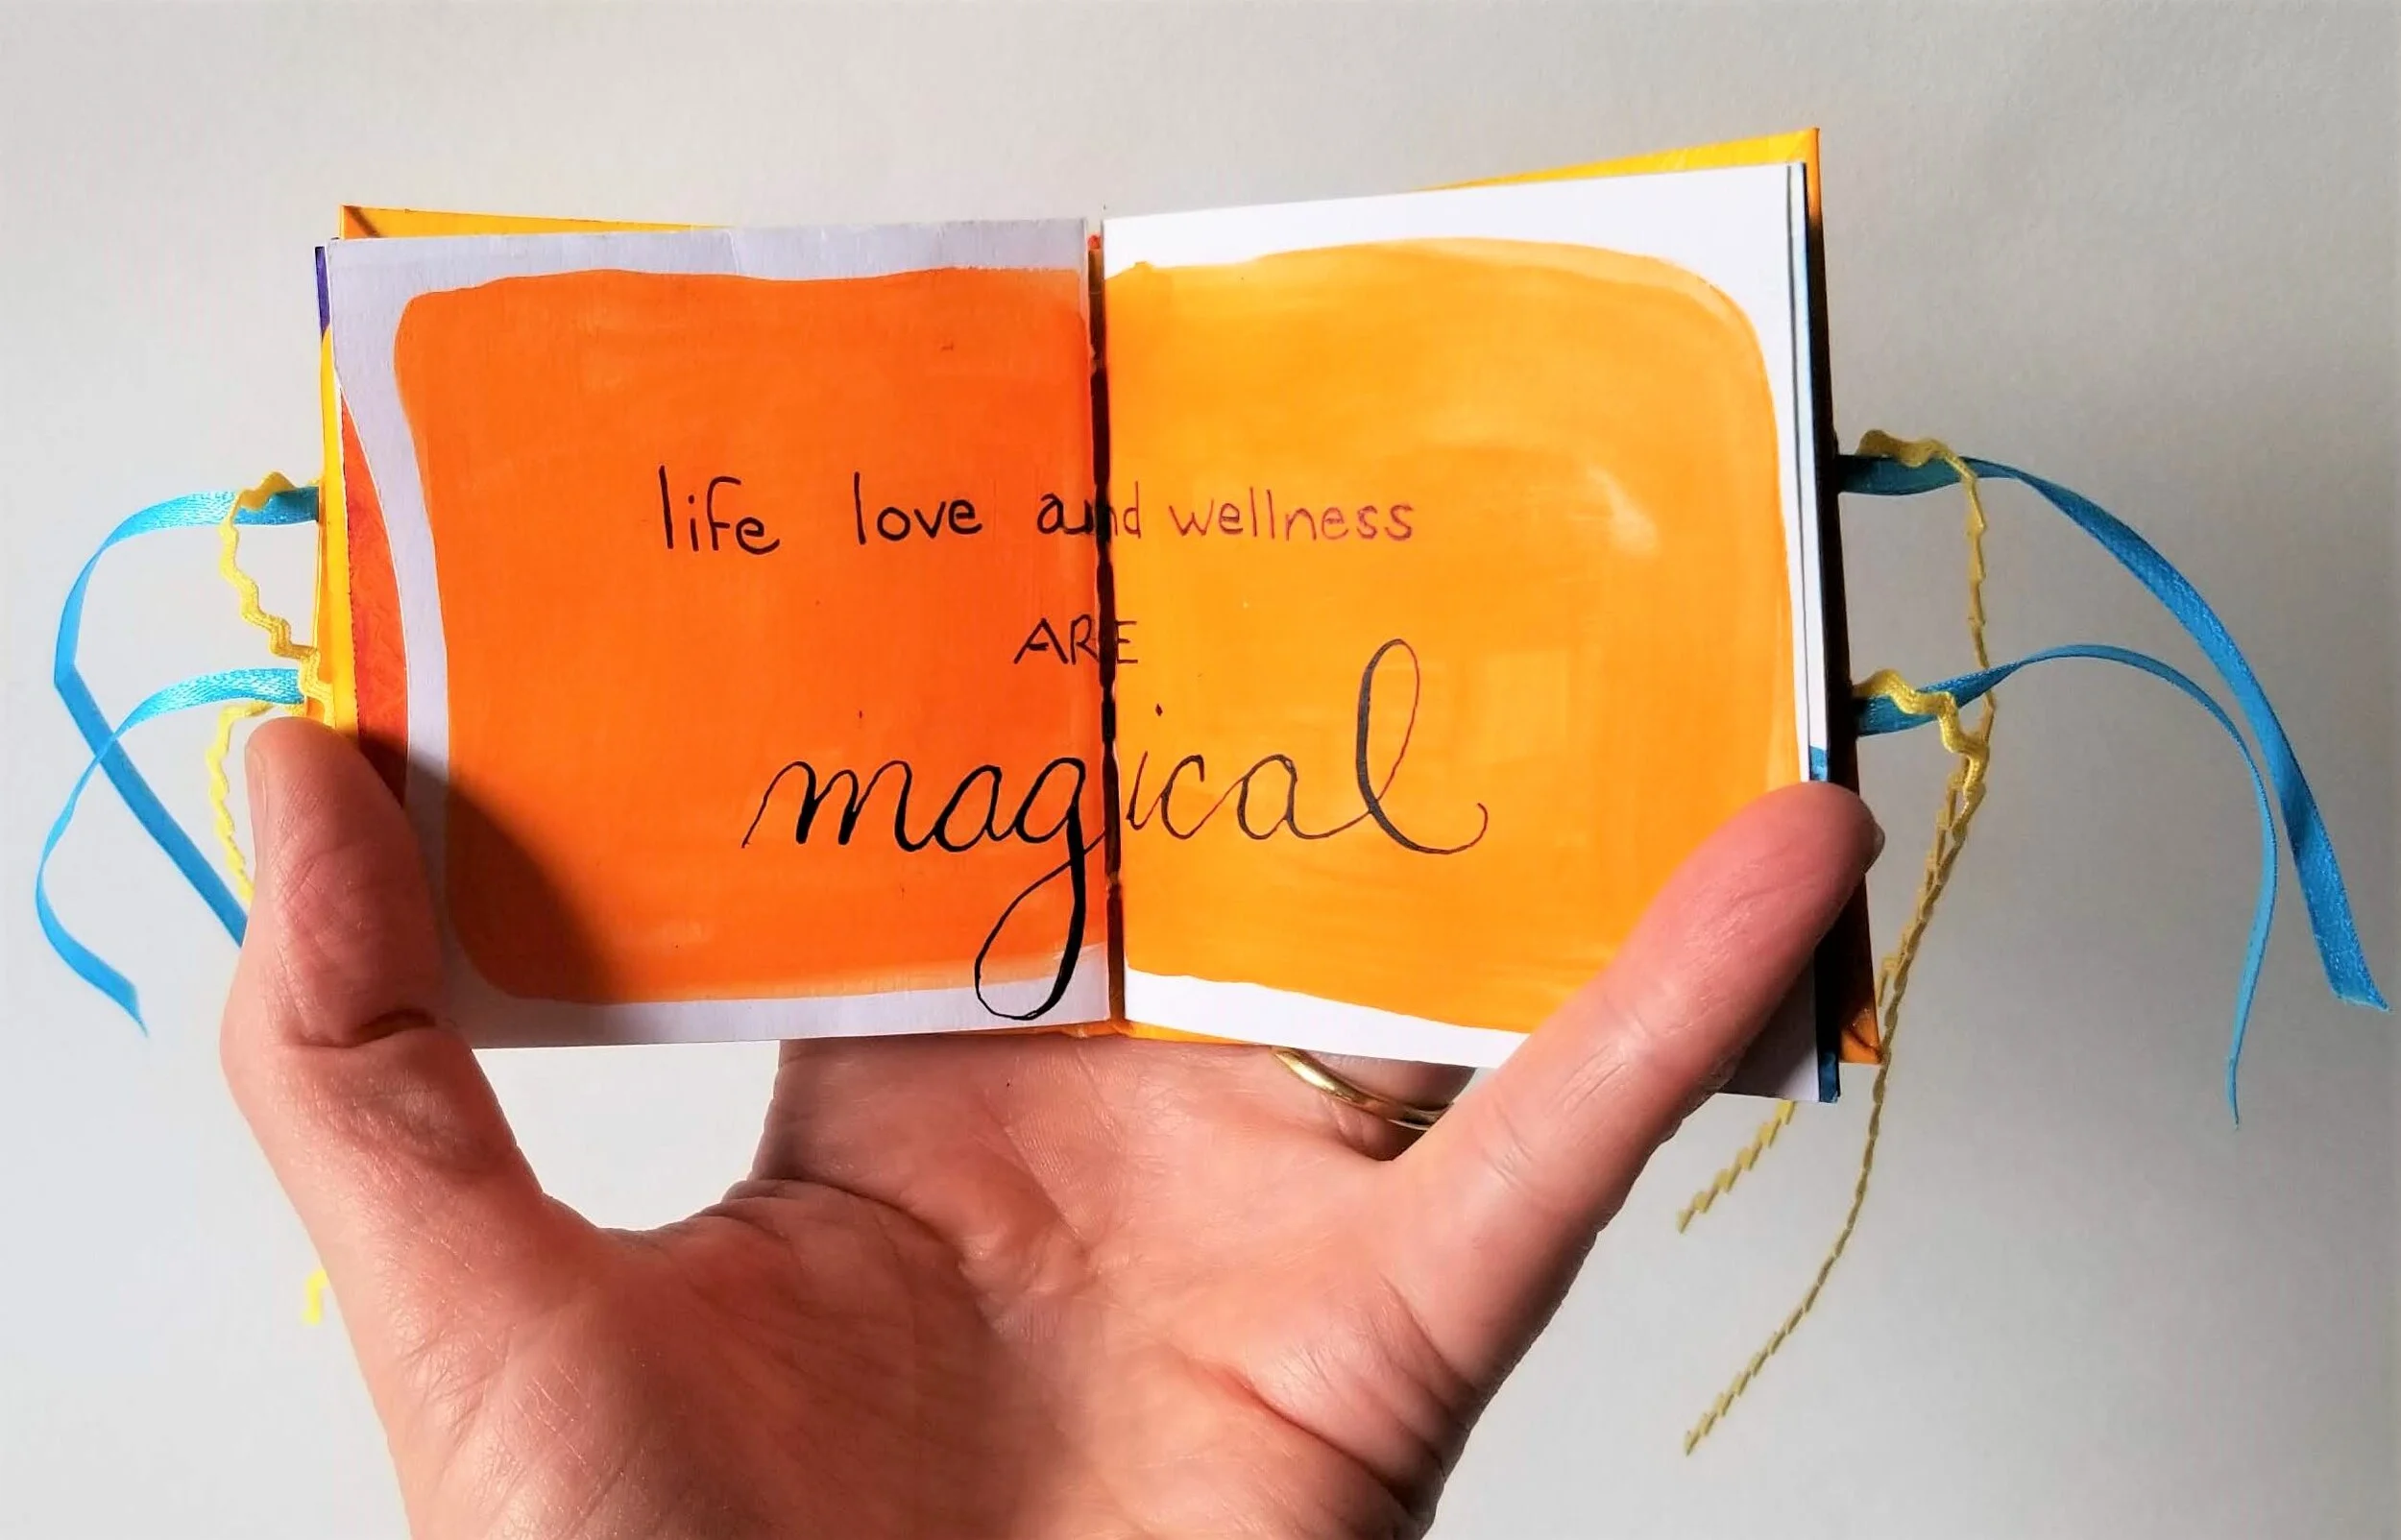 life love and wellness
ARE
magical